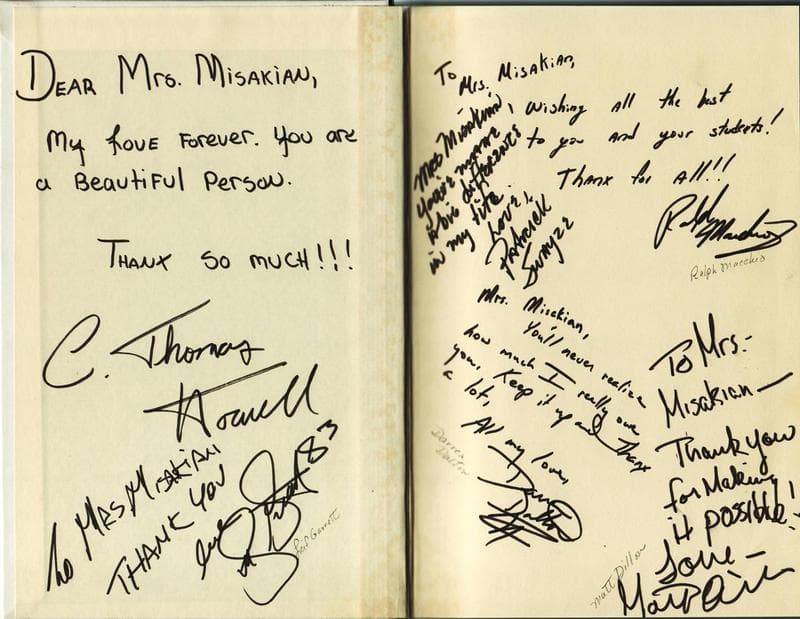 DEAR MRS. MISAKIAN,
My Love Forever. You are
a Beautiful Person.
THANX SO MUCH!!!
C. Thomas
Howell
To MRS MISAKIAN
THANK YOU
Love
83
Leif Garrett
To Mrs. MISAKIAN,
Wishing All the best
to you and your students!
Thanx for All!!
Ralph Macchio
Ralph Macchio
Mrs Misakian,
you've made
a big difference
in my life.
Love,
Patrick
Swayze
Mrs. Misakian,
You'll never realize
how much I really owe
you. Keep it up and Thanx
a lot,
All my love,
Darren
Dalton
Darren
Dalton
To Mrs.-
Misakian—
Thank you
for Making
it possible!
Love—
Matt Dillon
Matt Dillon